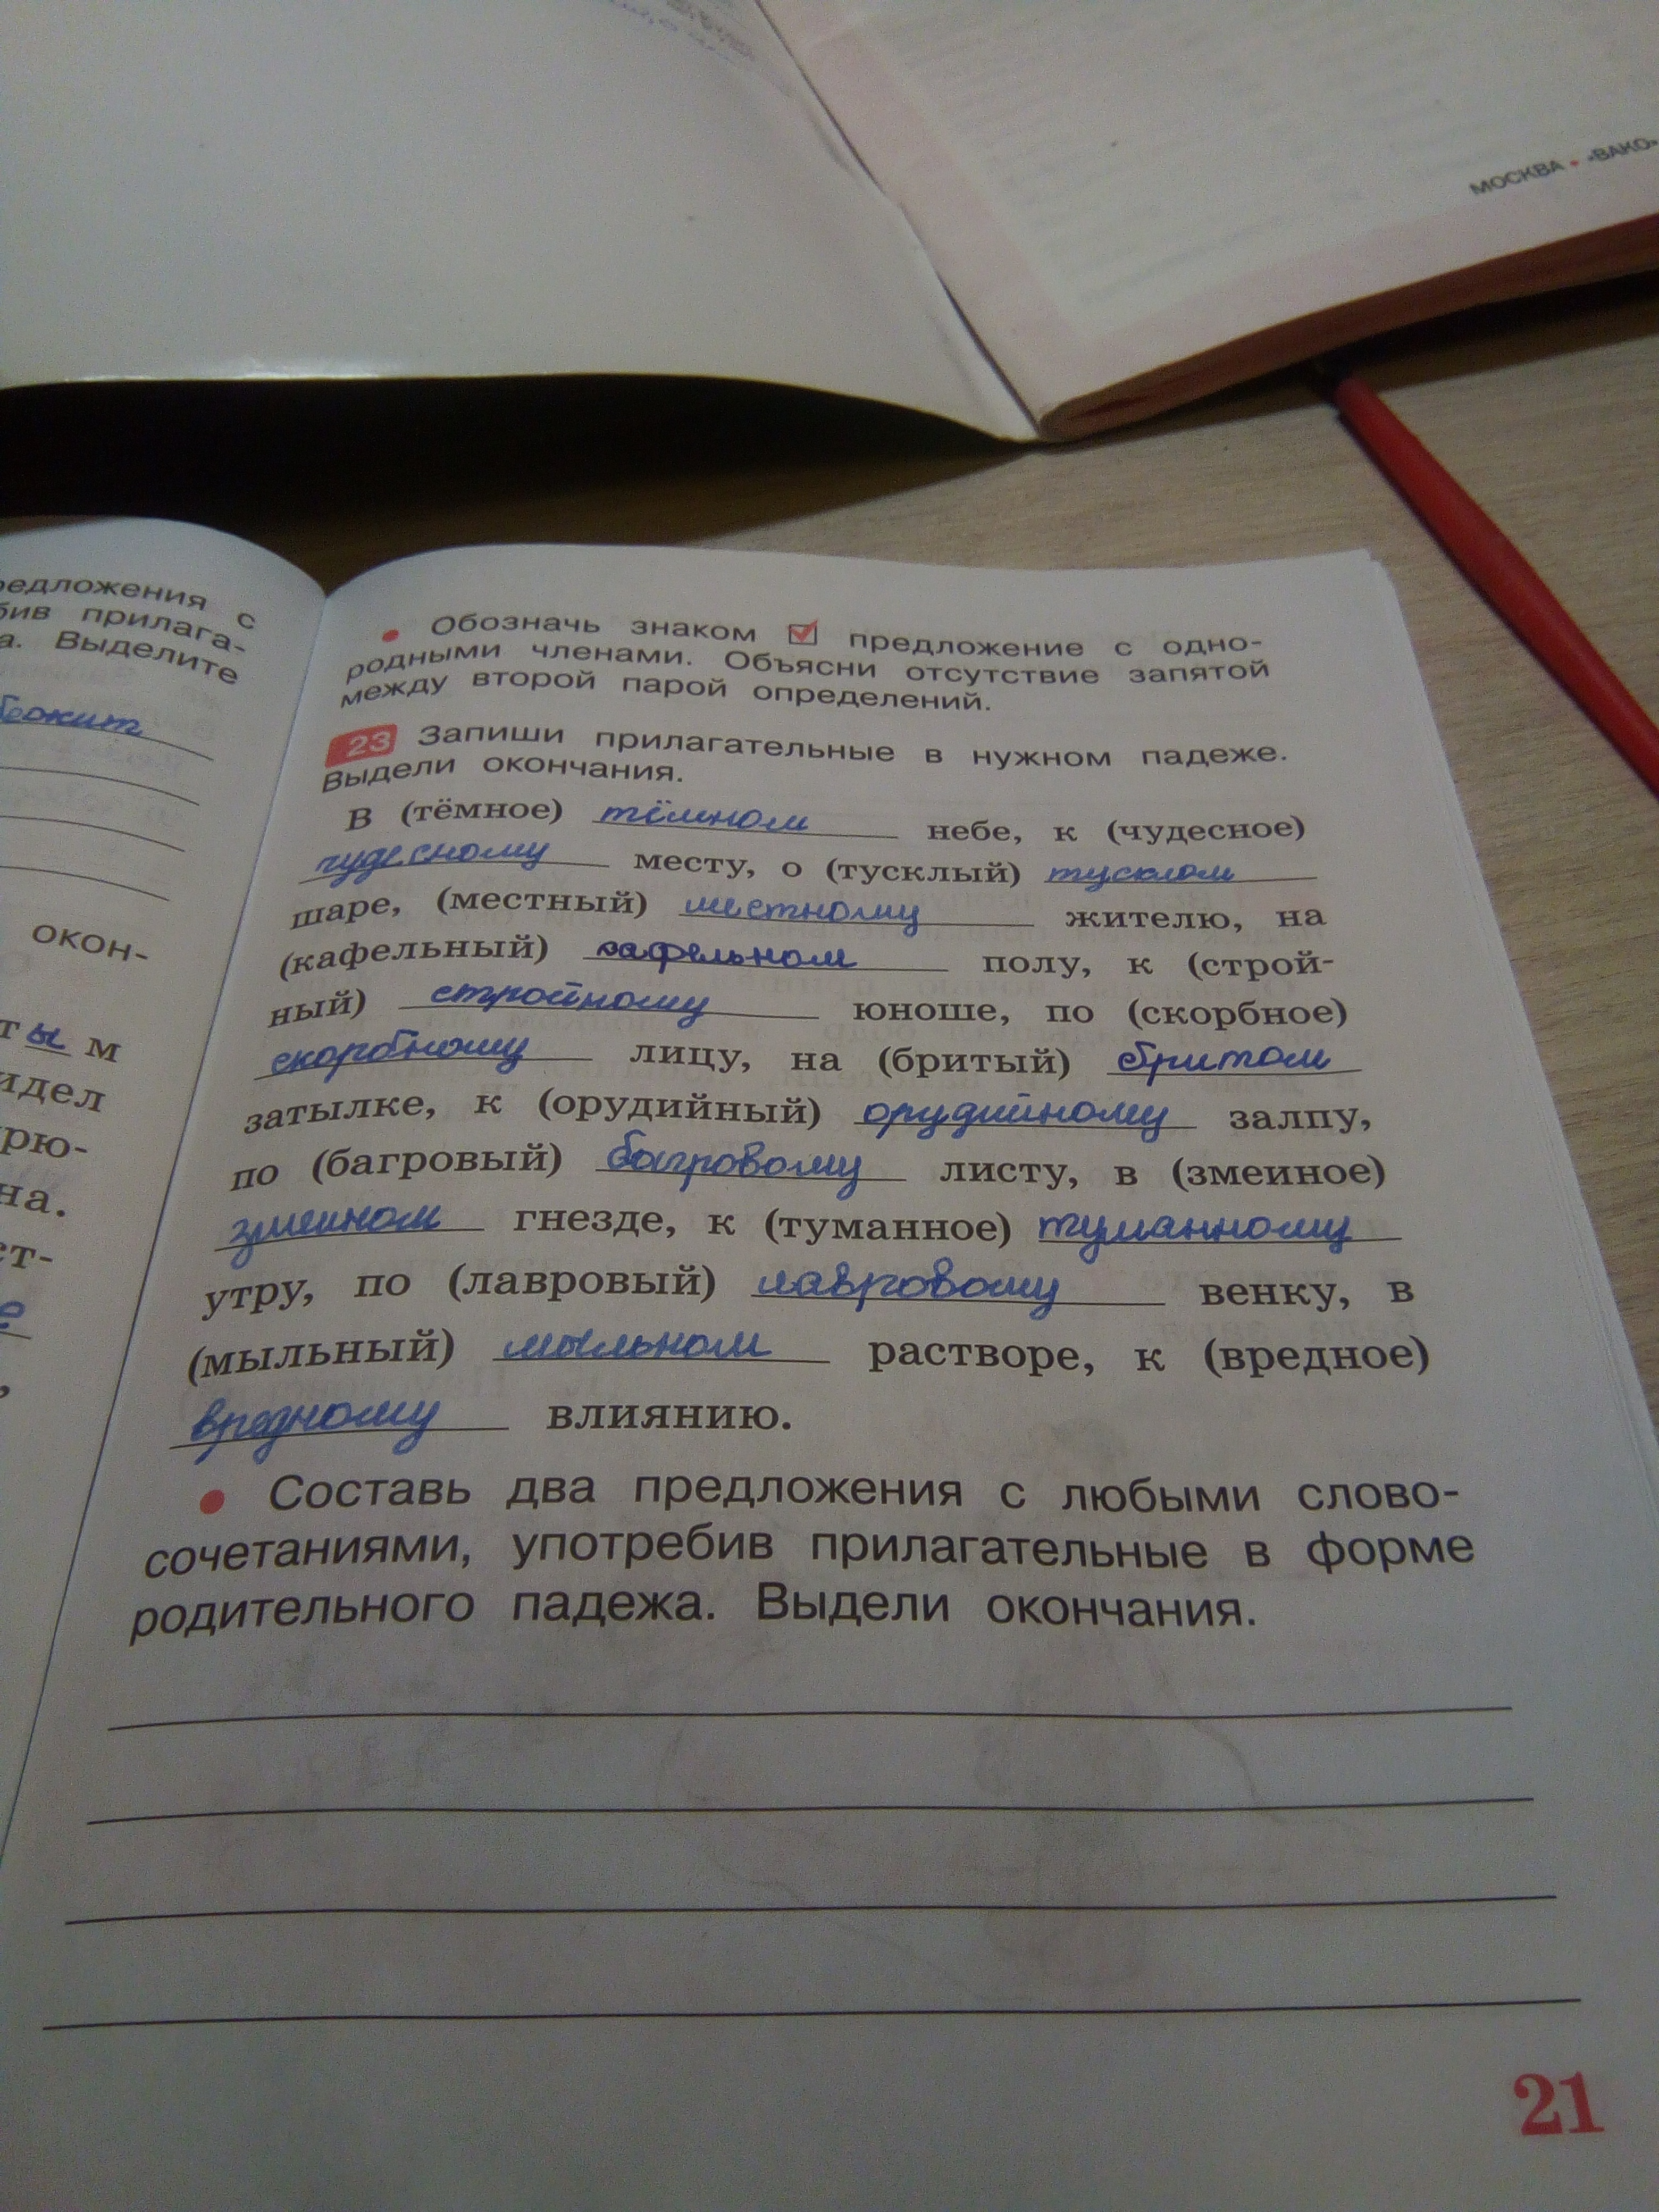 МОСКВА • «ВАКО»
редложения с
бив прилага-
а. Выделите
окон-
ты м
идел
рю-
на.
ст-
е
• Обозначь знаком ☑ предложение с одно-
родными членами. Объясни отсутствие запятой
между второй парой определений.
23 Запиши прилагательные в нужном падеже.
Выдели окончания.
В (тёмное) тёмном небе, к (чудесное)
чудесному месту, о (тусклый) тусклом
шаре, (местный) местному жителю, на
(кафельный) кафельном полу, к (строй-
ный) стройному юноше, по (скорбное)
скорбному лицу, на (бритый) бритом
затылке, к (орудийный) орудийному залпу,
по (багровый) багровому листу, в (змеиное)
змеином гнезде, к (туманное) туманному
утру, по (лавровый) лавровому венку, в
(мыльный) мыльном растворе, к (вредное)
вредному влиянию.
• Составь два предложения с любыми слово-
сочетаниями, употребив прилагательные в форме
родительного падежа. Выдели окончания.
21